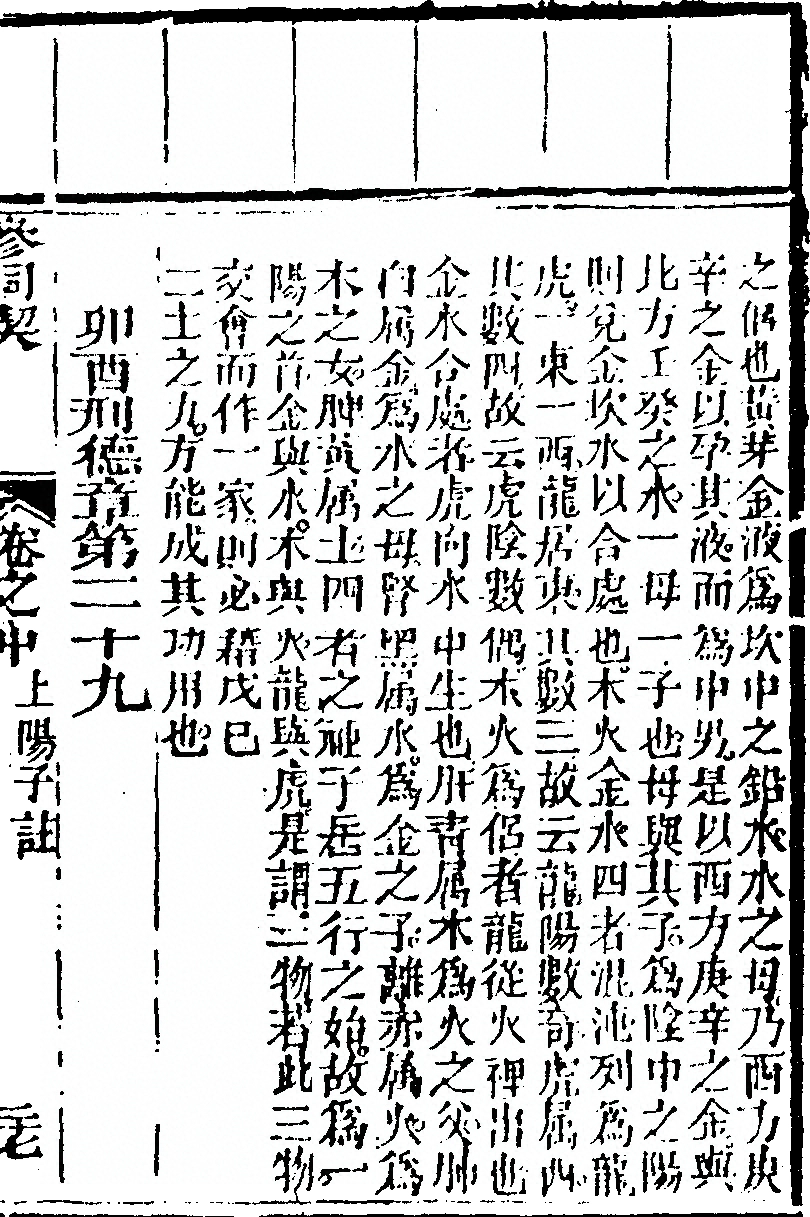 之侶也黃芽金液爲坎中之鉛水水之母乃西方庚
辛之金以孕其液而爲中男是以西方庚辛之金與
北方壬癸之水一母一子也母與其子爲陰中之陽
則兌金坎水以合處也木火金水四者混沌列爲龍
虎一東一西龍居東其數三故云龍陽數奇虎屬西
其數四故云虎陰數偶木火爲侶者龍從火裡出也
金水合處者虎向水中生也肝青屬木爲火之父肺
白屬金爲水之母腎黑屬水爲金之子離赤屬火爲
木之女脾黃屬土四者之祖子居五行之始故爲一
陽之首金與水木與火龍與虎是謂三物者此三物
交會而作一家則必藉戊己
二土之九方能成其功用也
卯酉刑德章第二十九
參同契 卷之中 上陽子註 三十七